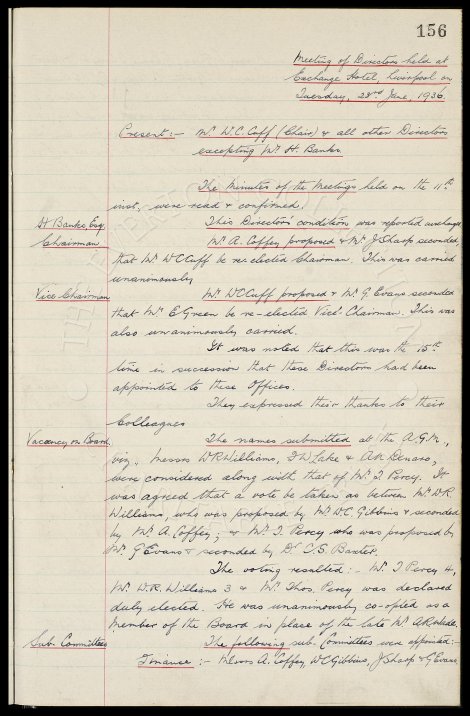 156
Meeting of Directors held at
Exchange Hotel, Liverpool on
Tuesday, 23rd June, 1936.
Present:- Mr W.C. Cuff (Chair) & all other Directors
excepting Mr H. Banks.
The Minutes of the Meetings held on the 11th
inst, were read & confirmed.
H Banks, Esq. This Director's condition was reported unchanged.
Chairman Mr A. Coffey proposed & Mr J Sharp seconded,
that Mr W C Cuff be re-elected Chairman. This was carried
unanimously
Vice Chairman Mr W C Cuff proposed & Mr G. Evans seconded
that Mr E Green be re-elected Vice-Chairman. This was
also unanimously carried.
It was noted that this was the 15th
time in succession that these Directors had been
appointed to these Offices.
They expressed their thanks to their
Colleagues
Vacancy on Board. The names submitted at the A.G.M.,
viz. Messrs W R Williams, Lake & A.R.
were considered along with that of Mr T. Percy. It
was agreed that a vote be taken as between Mr W.R.
Williams, who was proposed by Mr W.C. Gibbins & seconded
by Mr A. Coffey, & Mr T. Percy who was proposed by
Mr G Evans & seconded by Dr C.S. Baxter.
The voting resulted:- Mr T Percy 4,
Mr W.R. Williams 3 & Mr Thos. Percy was declared
duly elected. He was unanimously co-opted as a
member of the Board in place of the late Mr
Sub. Committees The following sub. Committees were appointed:-
Finance:- Messrs A. Coffey, W C Gibbins, J Sharp & G Evans